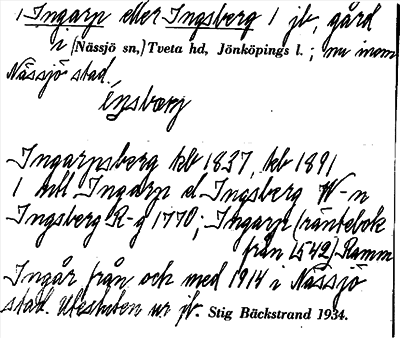 1 Ingarp eller Ingsberg 1 jb, gård
i (Nässjö sn,) Tveta hd, Jönköpings l.; nu inom
Nässjö stad.
Ingarpsberg kb 1837, kb 1891
1 htl Ingarp el Ingsberg W-n
Ingsberg R-g 1770; Ingarp (räntebok
från 1542) Ramm
Ingår från och med 1914 i Nässjö
stad. Utesluten ur jb. Stig Bäckstrand 1934.